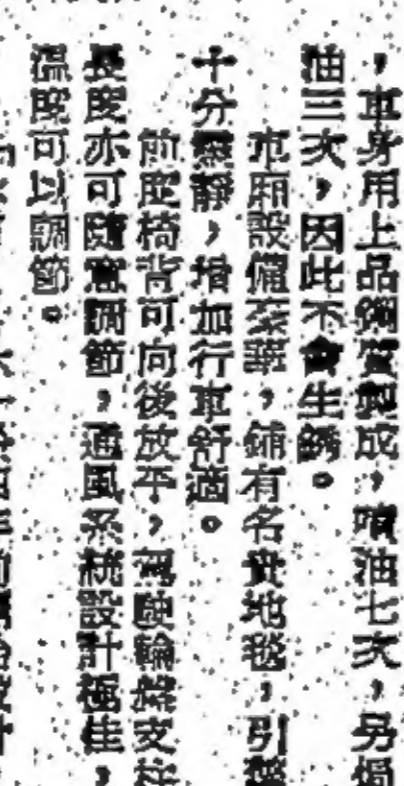 ，車身用上品鋼質製成，噴油七次，另
油三次，因此不會生銹。
車廂設備豪華，鋪有名貴地毯，引
十分靜，增加行車舒適。
前座椅背可向後放平，駕駛輪盤支柱
長度亦可隨意調節，通風系統設計極佳，
溫度可以調節。